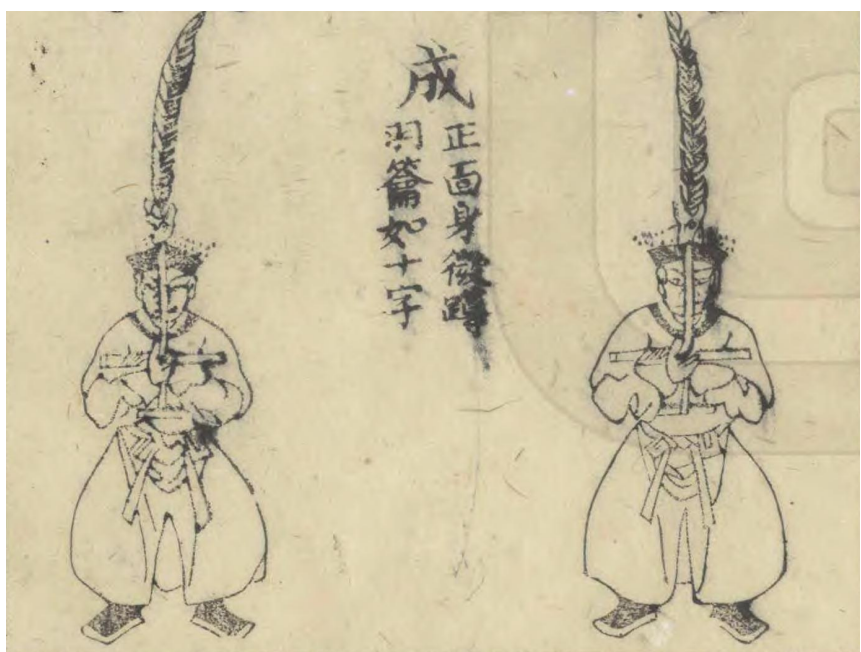 成
正面身微蹲
羽籥如十字